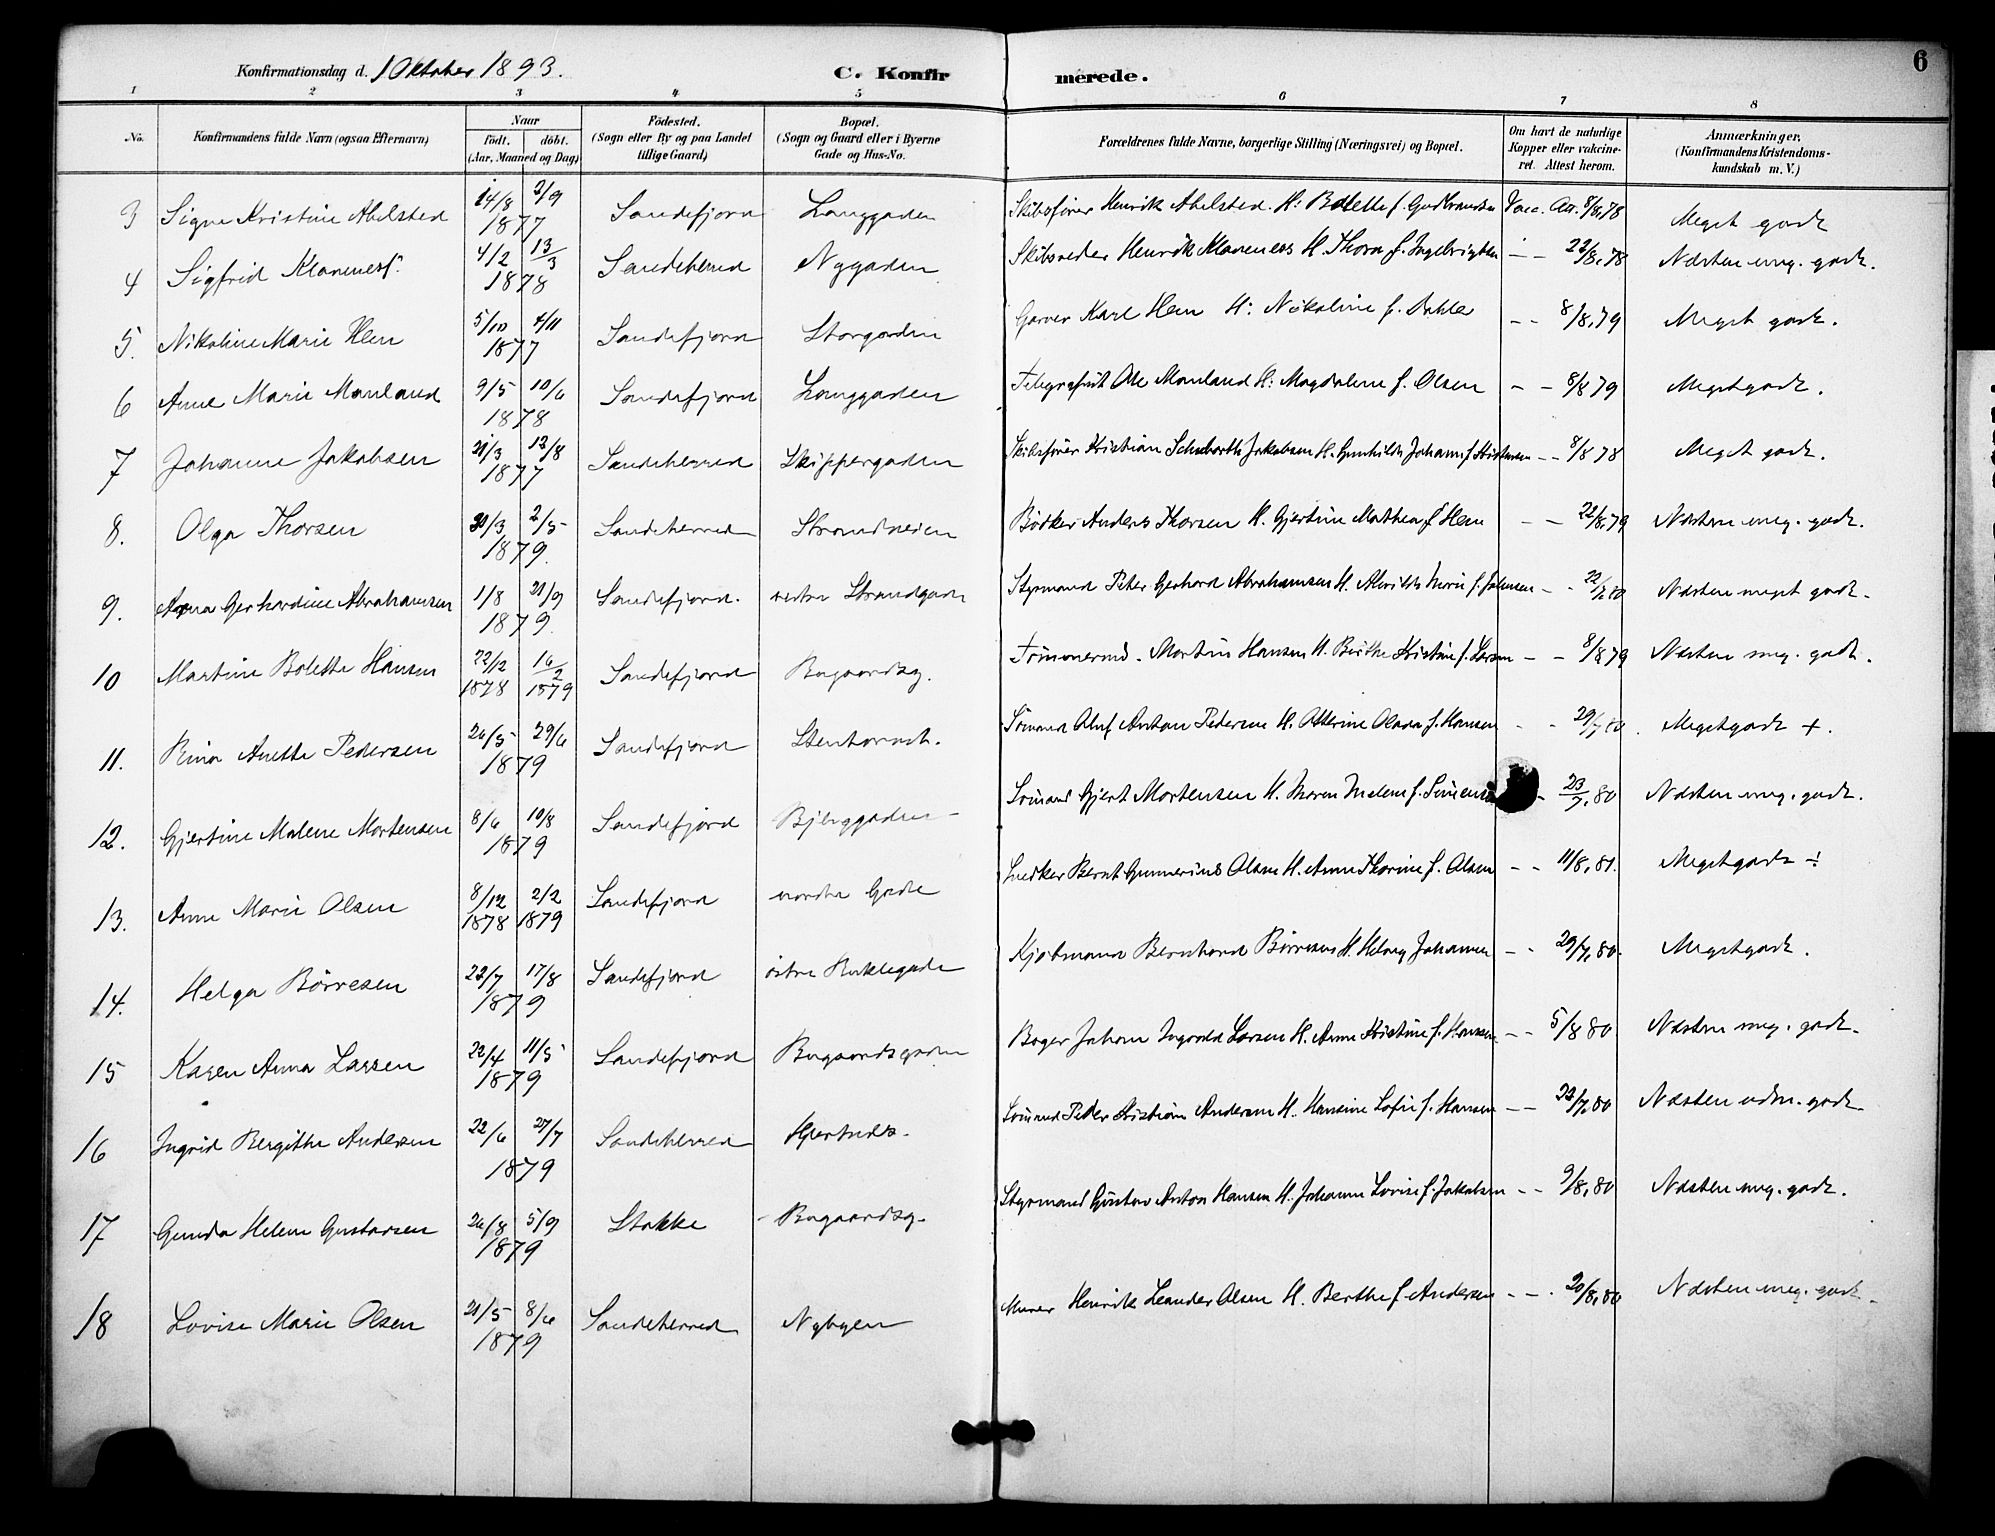 6
Konfirmationsdag d. 1 Oktober 1893. C. Konfirmerede.
1 2 3 4 5 6 7 8
No. Konfirmandens fulde Navn (ogsaa Efternavn) Naar født. døbt. (Aar, Maaned og Dag) Födested. (Sogn eller By og paa Landet tillige Gaard) Bopæl. (Sogn og Gaard eller i Byerne Gade og Hus-No. Forældrenes fulde Navne, borgerlige Stilling (Næringsvei) og Bopæl. Om havt de naturlige Kopper eller vakcineret. Attest herom. Anmærkninger, (Konfirmandens Kristendomskundskab m. V.)
3 Signe Kristine Abelsted 14/8 2/9 1877 Sandefjord Langgaden Skibsfører Henrik Abelsted. H: Bolette f. Gudbrandsen Vacc. Att. 8/8,78 Meget godt
4 Sigfrid Klavenes 4/2 13/3 1878 Sandeherred Nygaden Skibsreder Henrik Klavenes H. Thora f. Ingebrigtsen - - 22/8,78 Næsten meg. godt.
5. Nikoline Marie Hem 5/10 4/11 1877 Sandefjord Storgaden Garver Karl Hem H: Nikoline f. Dahle - - 8/8,79 Meget godt.
6 Anne Marie Manland 9/5 10/6 1878 Sandefjord Langgaden Telegrafist Ole Manland H: Magdalene f. Olsen - - 8/8 79 Meget godt.
7 Johanne Jakobsen 21/3 12/8 1877 Sandeherred Skippergaden Skibsfører Kristian Schubarth Jakobsen H. Gunhilde Johanne f. Kristensen - - 8/8 78 Meget godt.
8. Olga Thorsen 31/3 2/5 1879. Sandeherred Strandveien Bødker Anders Thorsen H. Gjertine Mathea f. Hem - - 22/8,79 Næsten meg. godt.
9. Anna Gerhardine Abrahamsen 1/8 21/9 1879. Sandefjord. vestre Strandgade Styrmand Peter Gerhard Abrahamsen H. Alvilde Marie f. Johnsen - - 22/7,80 Næsten meget godt.
10 Martine Bolette Hansen 22/12 1878 16/2 1879 Sandefjord Bugaardsg. Tømmermd. Martin Hansen H. Birthe Kristine f. Larsen - - 8/8,79 Næsten meg. godt.
11. Rina Anette Pedersen 26/5 29/6 1879 Sandefjord Sømand Oluf Anton Pedersen H. Olava f. Hansen - - 29/7 80. Meget godt +.
12. Gjertine Malene Mortensen 8/6 10/8 1879 Sandefjord Bjerggaden Sømand Gjert Mortensen H. Maren Malene f. - 23/7,80 Næsten meg. godt.
13. Anne Marie Olsen 8/12 1878 2/2 1879 Sandefjord nordre Gade Snedker Bernt Gunnerius Olsen H. Anne Thorine f. Olsen - - 11/8,81. Meget godt ÷
14. Helga Børresen 22/7 17/8 1879 Sandefjord østre Kjøbmand Bernhard Børresen H. Helvig Johansen - - 29/7,80. Meget godt.
15 Karen Anna Larsen 22/4 11/5 1879 Sandefjord Bugaardsgaden Bager Johan Ingvald Larsen H. Anne Kristine f. Hansen - - 5/8 80 Næsten meg. godt.
16 Ingrid Bergithe Andersen 22/6 27/7 1879 Sandeherred Hjertnes. Sømand Peder Kristian Andersen H. Hansine Sofie f. Hansen - - 22/7,80 Næsten udm. godt
17 Gunda Helene Gustavsen 26/8 5/9 1879 Stokke - Bugaardsg. Styrmand Gustav Anton Hansen H. Johanne Lovise f. Jakobsen - - 9/8,80 Næsten meg. godt.
18 Lovise Marie Olsen 21/5 8/6 1879 Sandeherred Nybyen Murer Henrik Leander Olsen H. Berthe f. Andersen - - 20/8,80 Næsten meg. godt.